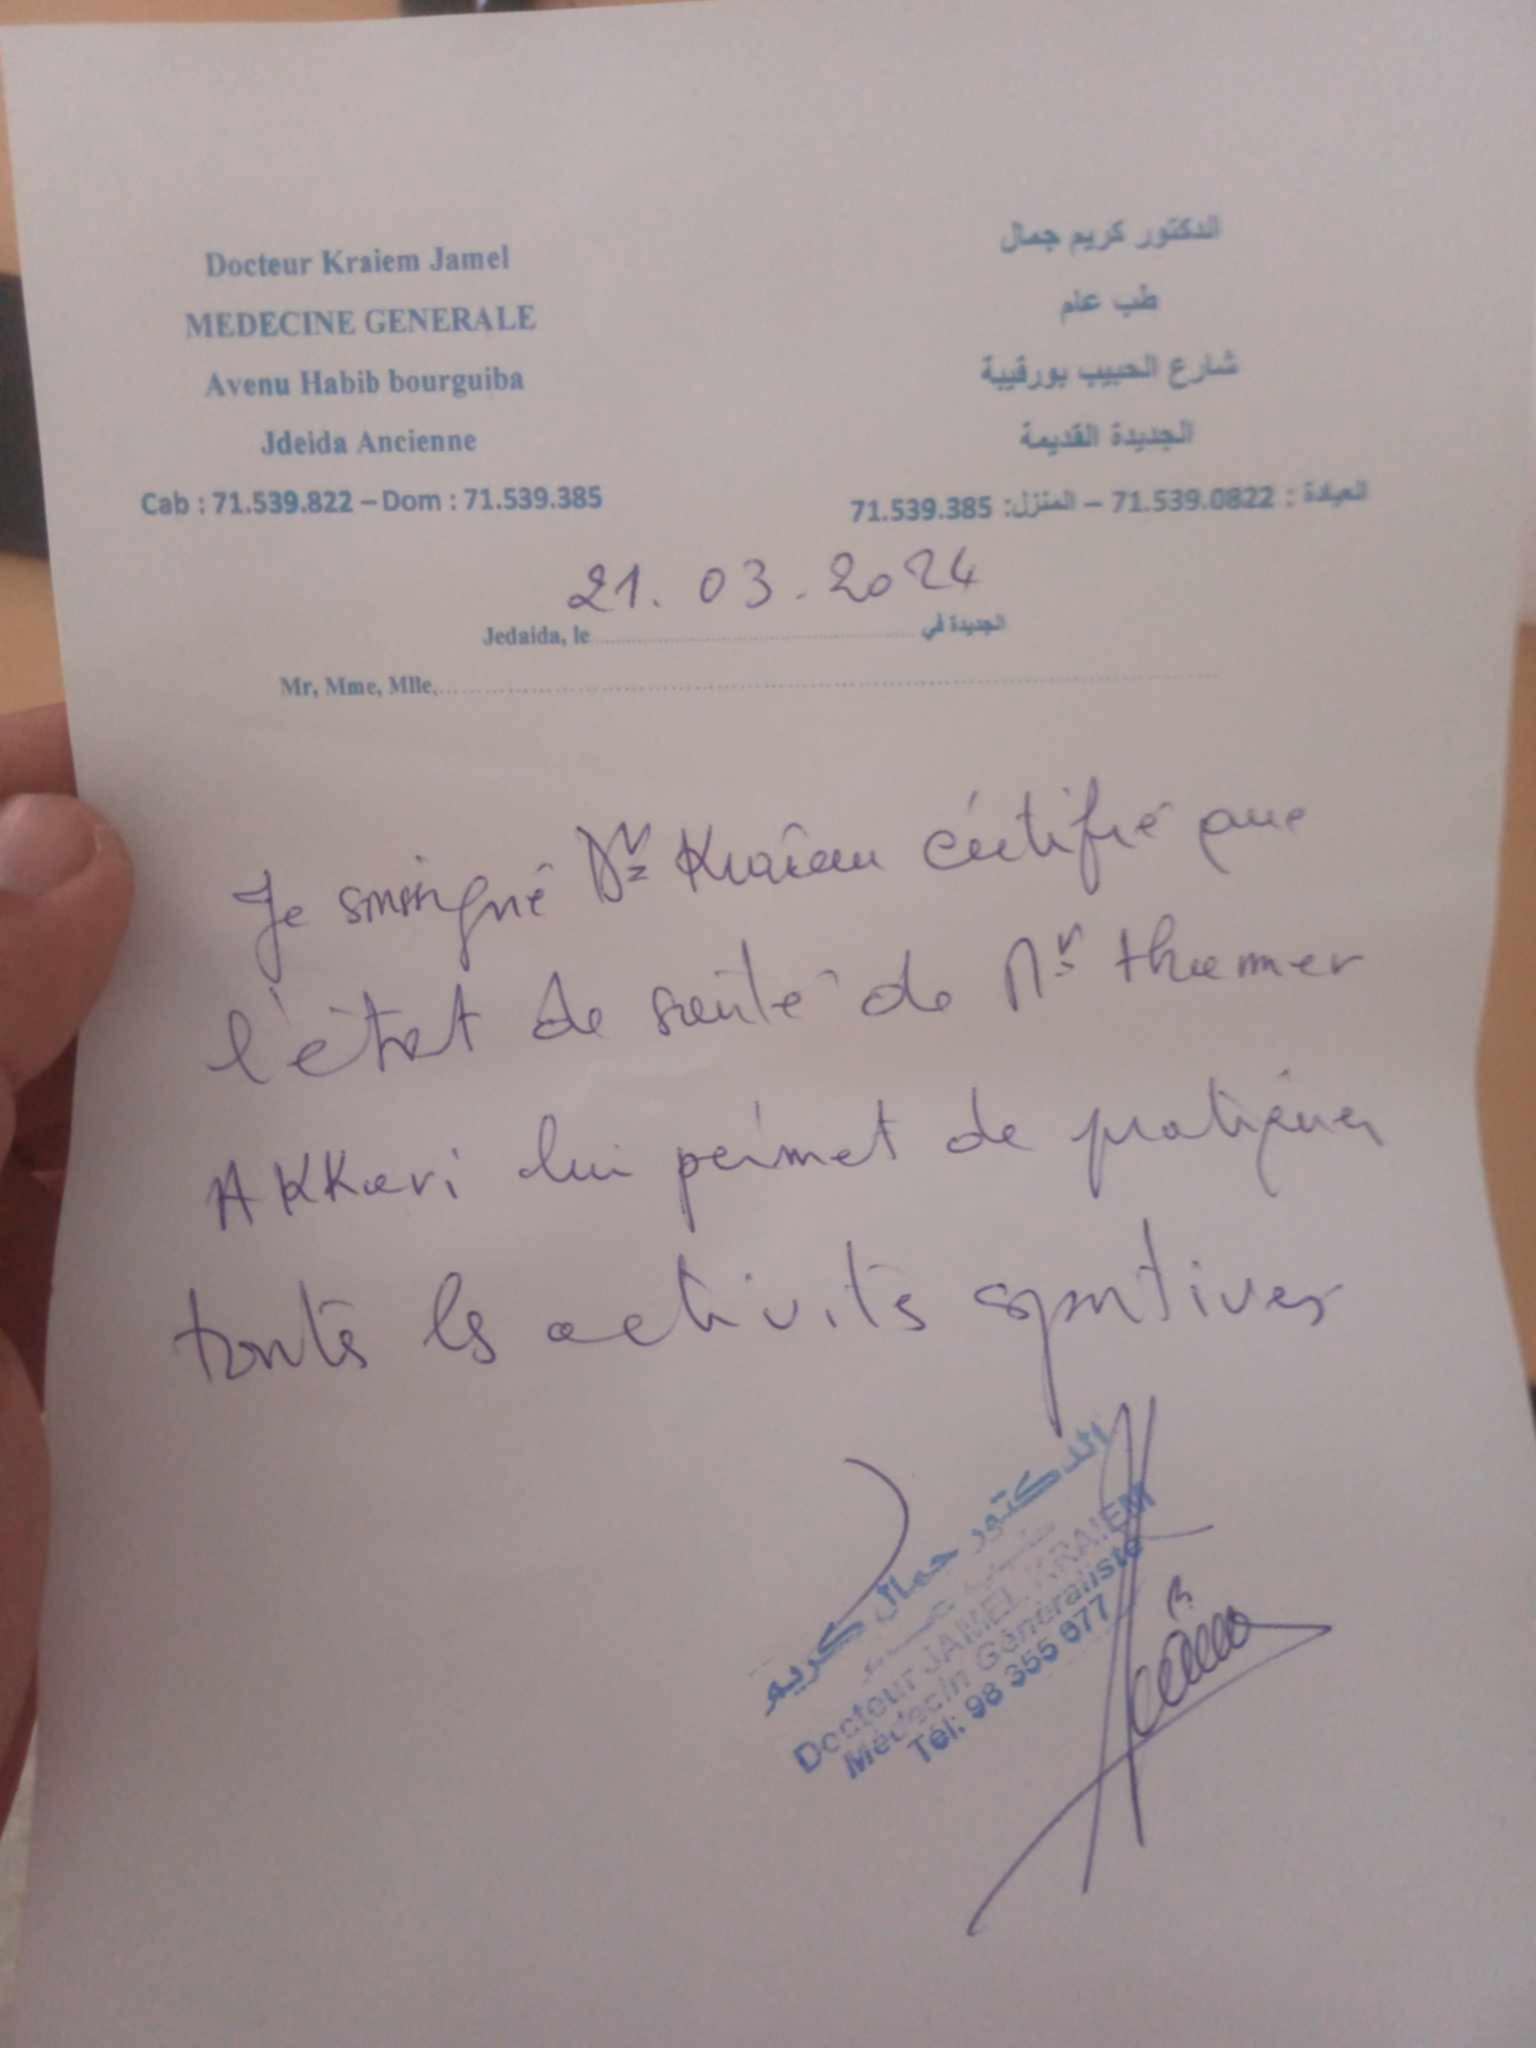 Docteur Kraiem Jamel
MEDECINE GENERALE
Avenu Habib bourguiba
Jdeida Ancienne
Cab : 71.539.822 – Dom : 71.539.385
الدكتور كريم جمال
طب عام
شارع الحبيب بورقيبة
الجديدة القديمة
العيادة : 71.539.0822 – المنزل: 71.539.385
21.03.2024
Jedaida, le الجديدة في
Mr, Mme, Mlle,
Je soussigné Dr Kraïem cértifié que
l'état de santé de Mr thamer
AKKari lui pérmet de pratiquer
toutes les activités sportives
الدكتور جمال كريم
Docteur JAMEL KRAIEM
Médecin Généraliste
Tél: 98 355 077